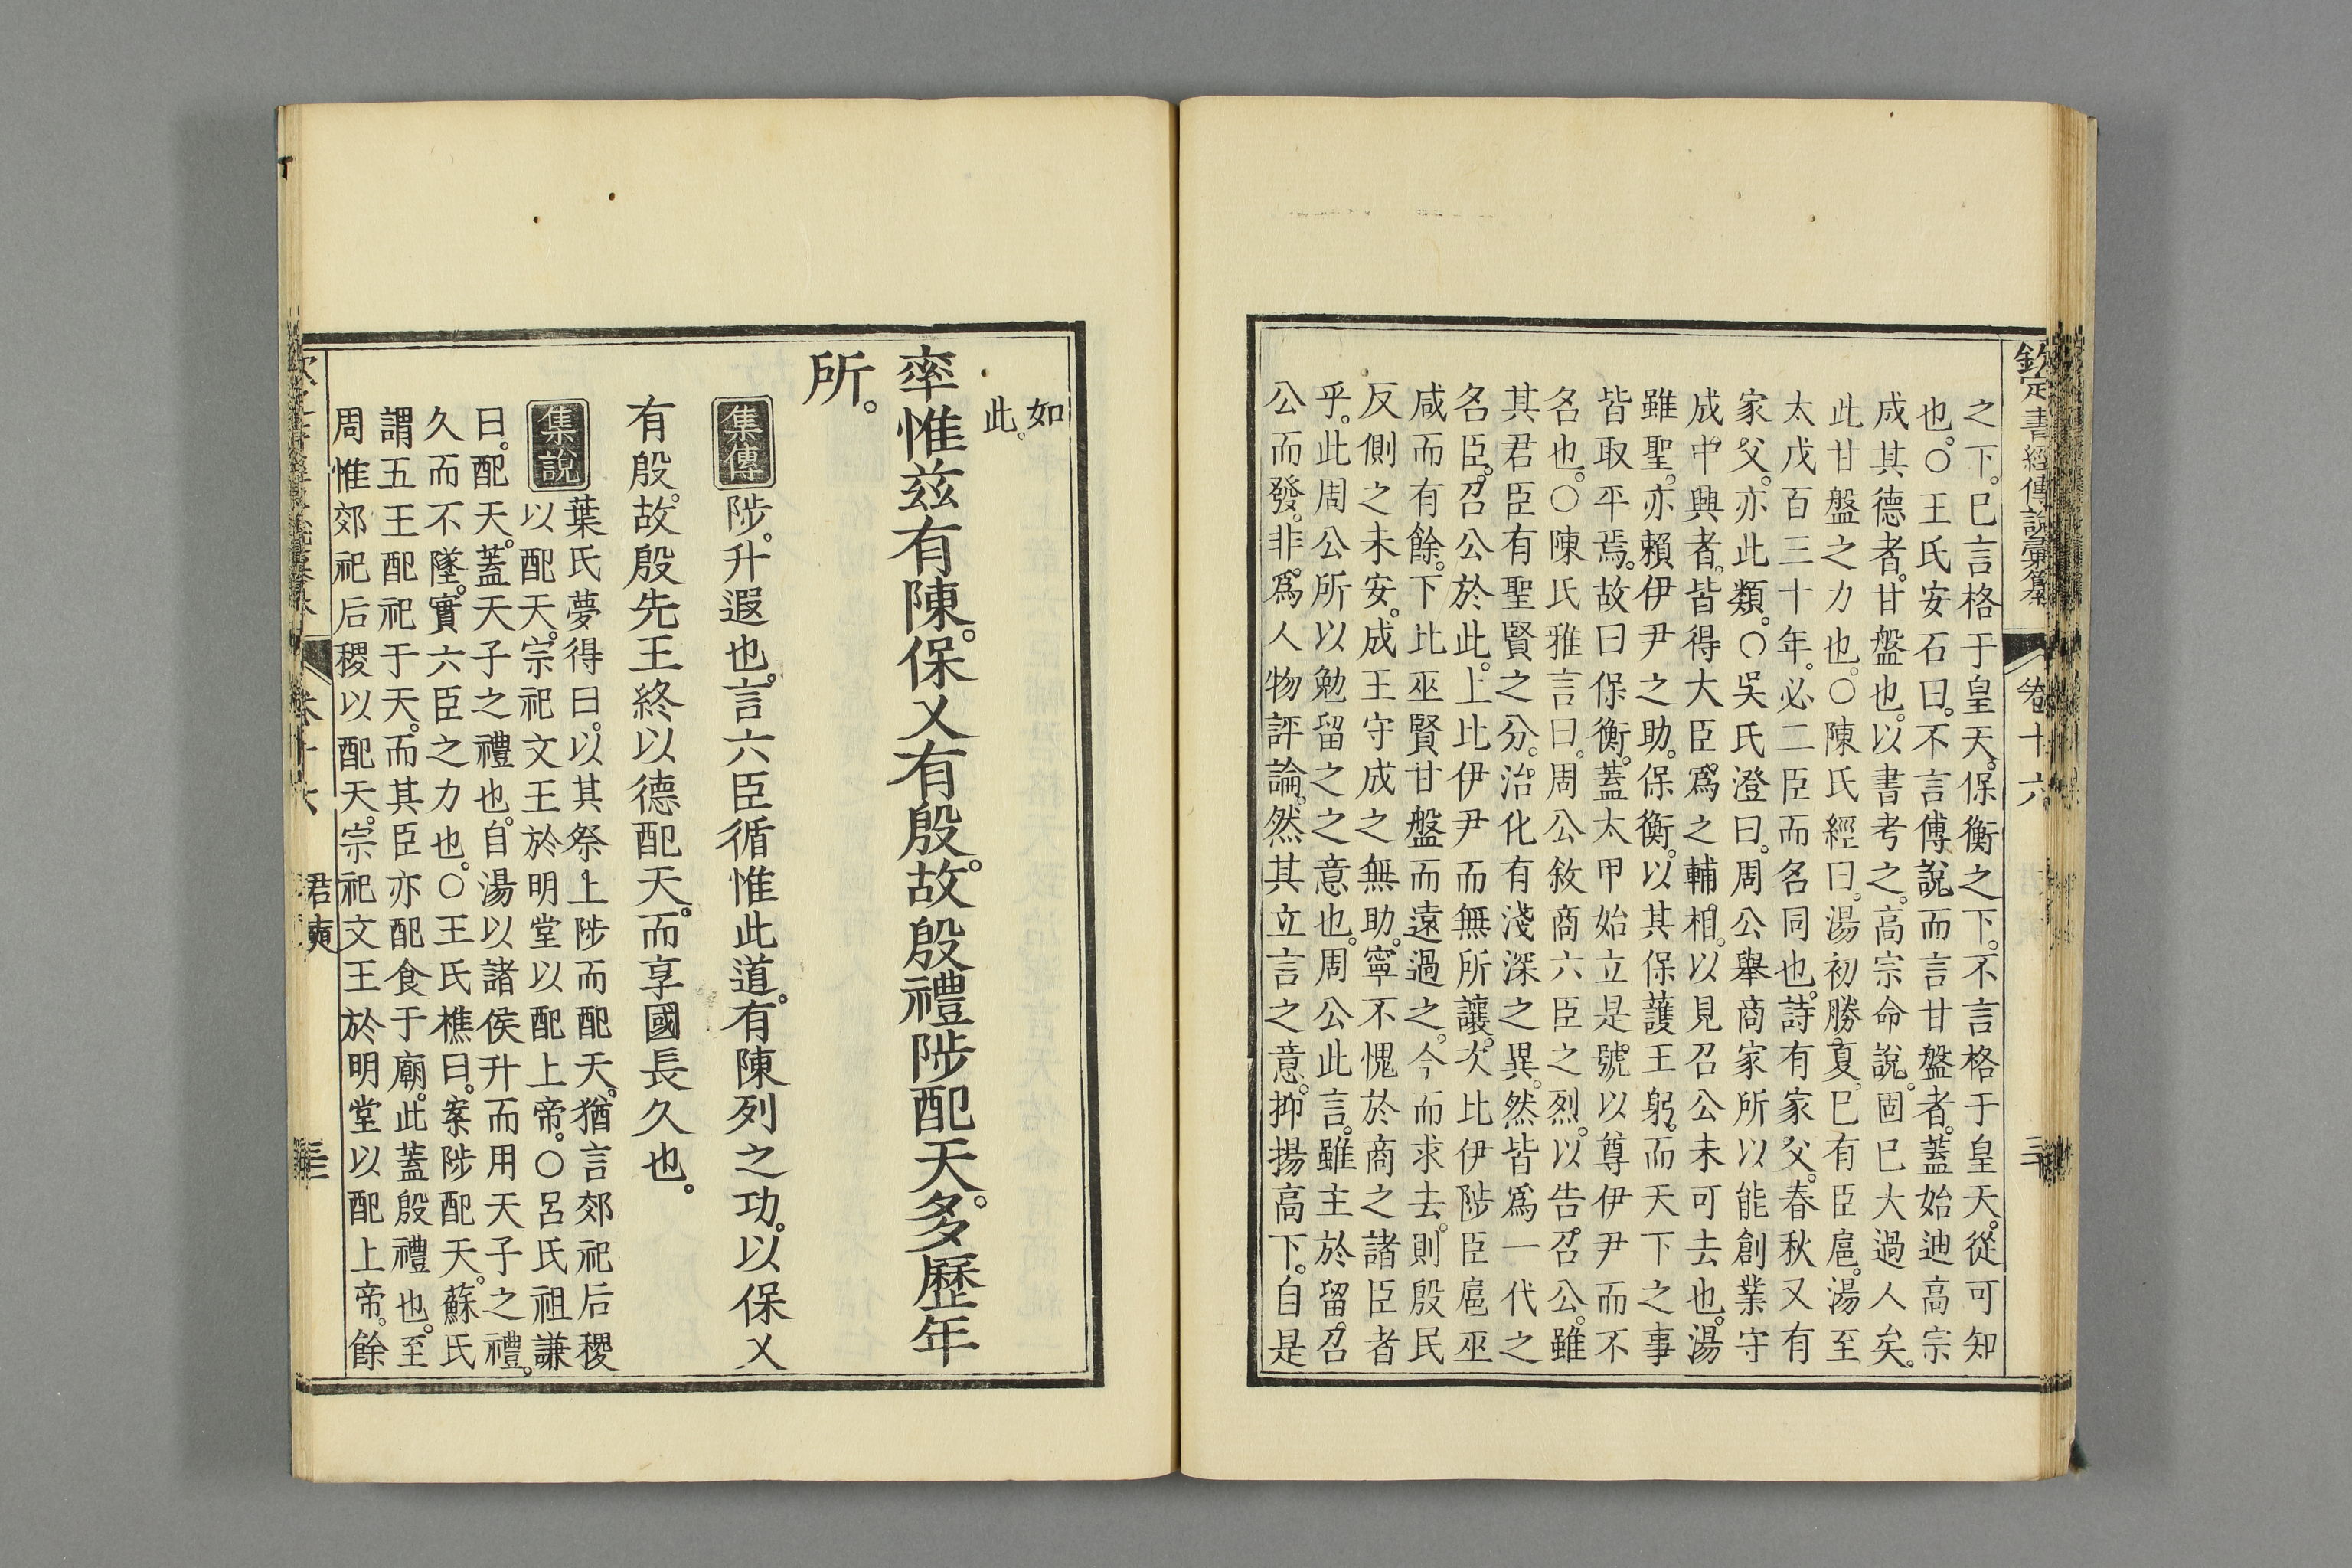 欽定書經傳說彙纂 卷十六
之下。巳言格于皇天。保衡之下。不言格于皇天。從可知
也。○王氏安石曰。不言傅說而言甘盤者。蓋始迪高宗
成其德者。甘盤也。以書考之。高宗命說。固巳大過人矣。
此甘盤之力也。○陳氏經曰。湯初勝夏。巳有臣扈。湯至
太戊百三十年。必二臣而名同也。詩有家父。春秋又有
家父。亦此類。○吳氏澄曰。周公舉商家所以能創業守
成中興者。皆得大臣。爲之輔相。以見召公未可去也。湯
雖聖。亦賴伊尹之助。保衡。以其保護王躬。而天下之事
皆取平焉。故曰保衡。蓋太甲始立是號。以尊伊尹而不
名也。○陳氏雅言曰。周公敘商六臣之烈。以告召公。雖
其君臣有聖賢之分。治化有淺深之異。然皆爲一代之
名臣。召公於此。上比伊尹而無所讓。次比伊陟臣扈巫
咸而有餘。下比巫賢甘盤而遠過之。今而求去。則殷民
反側之未安。成王守成之無助。寧不愧於商之諸臣者
乎。此周公所以勉留之之意也。周公此言。雖主於留。召
公而發。非爲人物評論。然其立言之意。抑揚高下。自是
如
此。
率惟兹有陳。保乂有殷。故殷禮陟配天。多歷年
所。
集傳 陟。升遐也。言六臣循惟此道。有陳列之功。以保乂
有殷。故殷先王終以德配天。而享國長久也。
集說 葉氏夢得曰。以其祭上陟而配天。猶言郊祀后稷
以配天。宗祀文王於明堂以配上帝。○呂氏祖謙
曰。配天。蓋天子之禮也。自湯以諸侯升而用天子之禮。
久而不墜。實六臣之力也。○王氏樵曰。案陟配天。蘇氏
謂五王配祀于天。而其臣亦配食于廟。此蓋殷禮也。至
周惟郊祀后稷以配天。宗祀文王於明堂以配上帝。餘
君奭